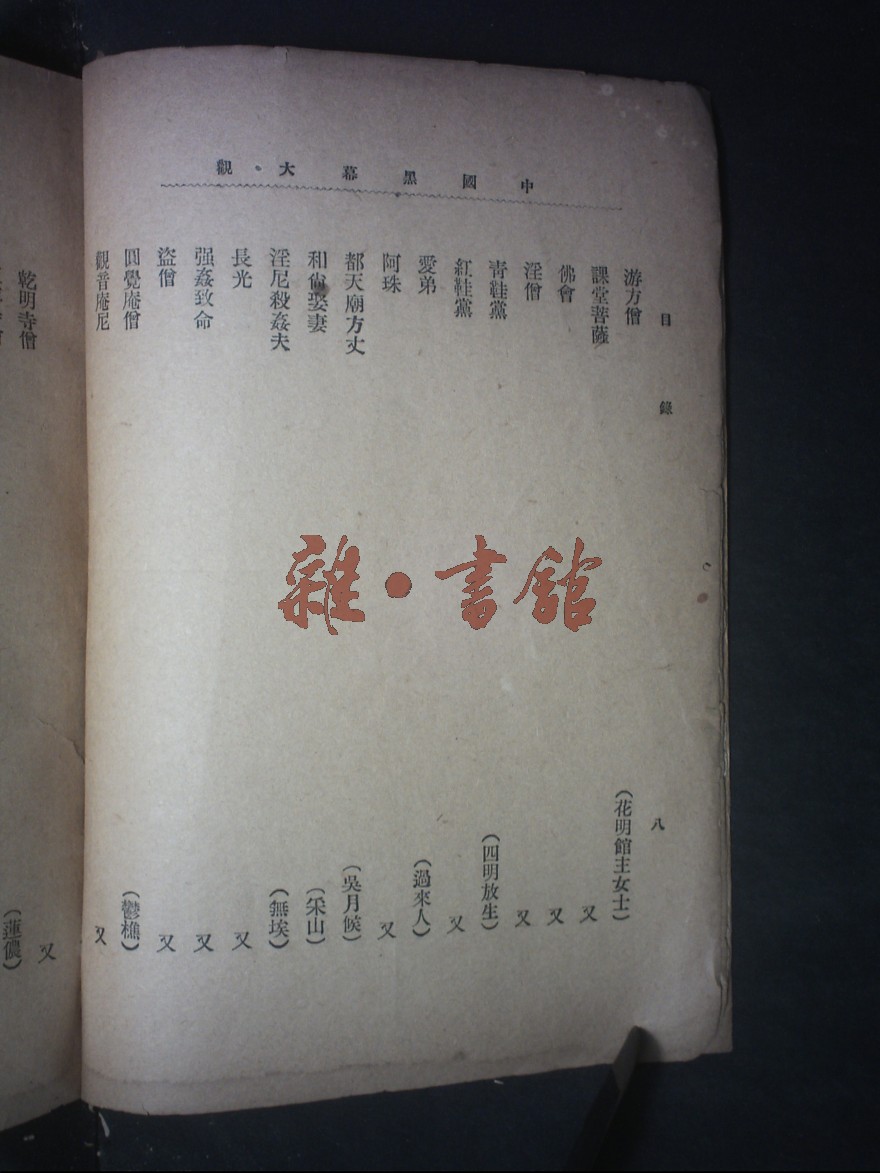 中國黑幕大觀
目錄 八
游方僧 (花明館主女士)
課堂菩薩 又
佛會 又
淫僧 又
青鞋黨 (四明放生)
紅鞋黨 又
愛弟 (過來人)
阿珠 又
都天廟方丈 (吳月候)
和尙娶妻 (采山)
淫尼殺姦夫 (無埃)
長光 又
强姦致命 又
盜僧 又
圓覺庵僧 (鬱樵)
觀音庵尼 又
乾明寺僧 又
(蓮儂)
雜•書館